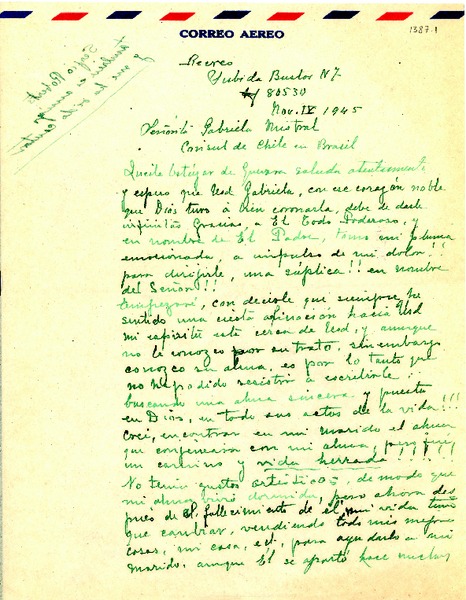 CORREO AEREO
1387-1
Recreo
Subida Bustos N 7
80530
Nov. IV 1945
Señorita Gabriela Mistral
Consul de Chile en Brasil
de Guevara saluda atentamente
y espero que Usd Gabriela, con ese corazón noble
que Dios tuvo á bien coronarla, debe de darle
infinitas Gracias, a El Todo Poderoso, y
en nombre de El Padre, tomo mi pluma
emocionada, a impulso de mi dolor!!
para dirijirle, una súplica!! en nombre
del Señor!!
Empezaré, con decirle que siempre he
sentido una cierta afinación hacia Usd
mi espíritu está cerca de Usd, y aunque
no le conozco por su trato, sin embargo
conozco su alma, es por lo tanto que
no he podido resistir a escribirle
buscando una alma sincera y puesta
en Dios, en todo sus actos de la vida!!!
Creí, encontrar en mi marido el alma
que confesara con mi alma, pero fuí
un camino y vida herrada!!!!
No tenía gustos artísticos, de modo que
mi alma vivió dormida, pero ahora des
pués de el fallecimiento de él mi vida tuvo
que cambiar, vendiendo todo mis mejores
cosas, mi casa, ect, para ayudarlo a mi
marido, aunque El se apartó hace muchos